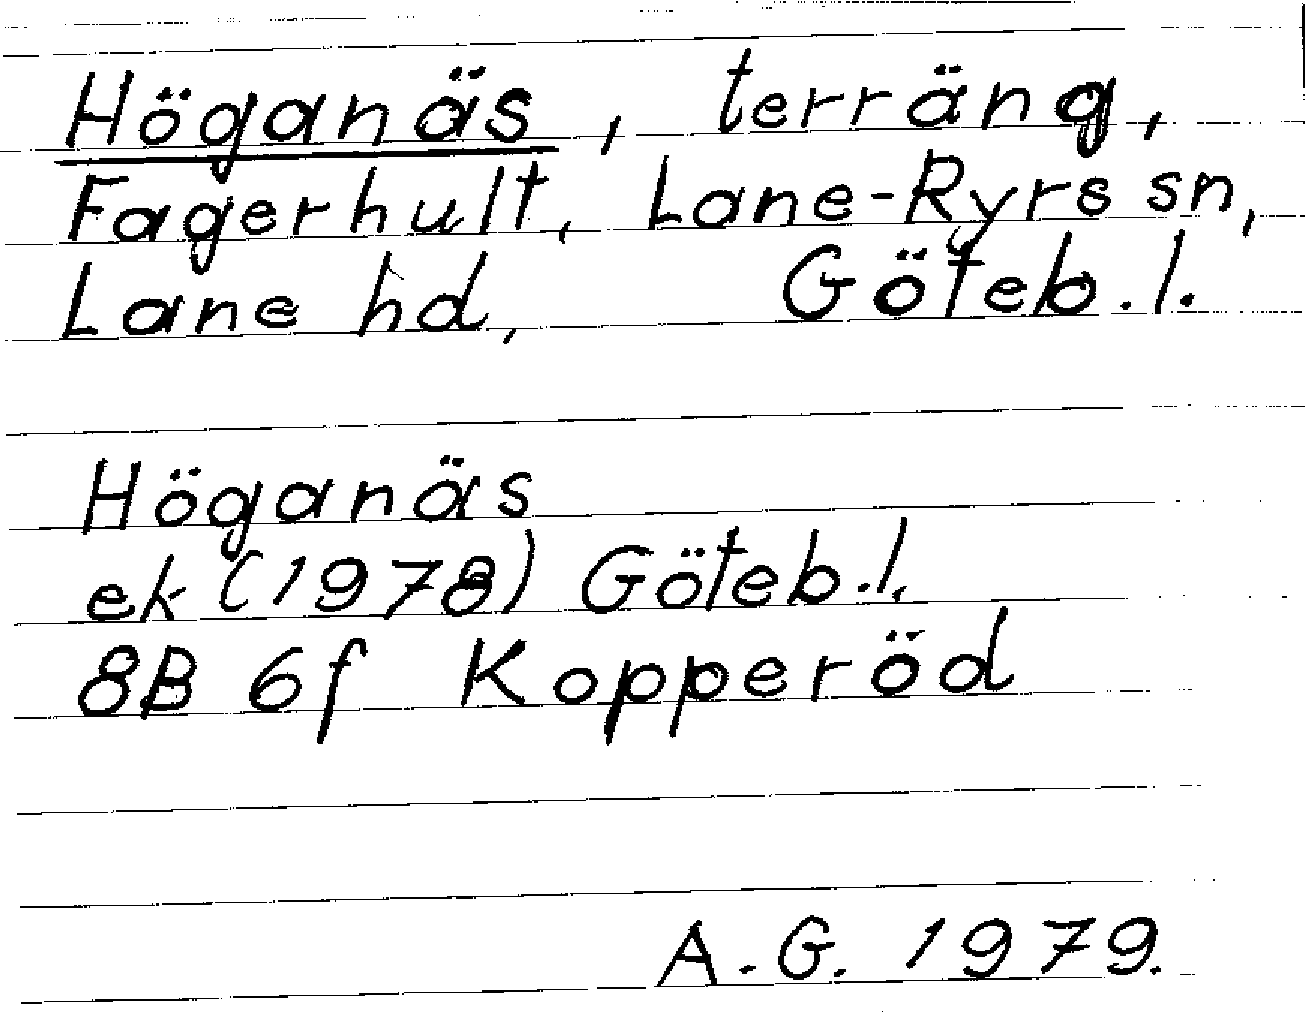 Höganäs, terräng,
Fagerhult, Lane-Ryrs sn,
Lane hd, Göteb.l.
Höganäs
ek (1978) Göteb.l.
8B 6f Kopperöd
A.G. 1979.